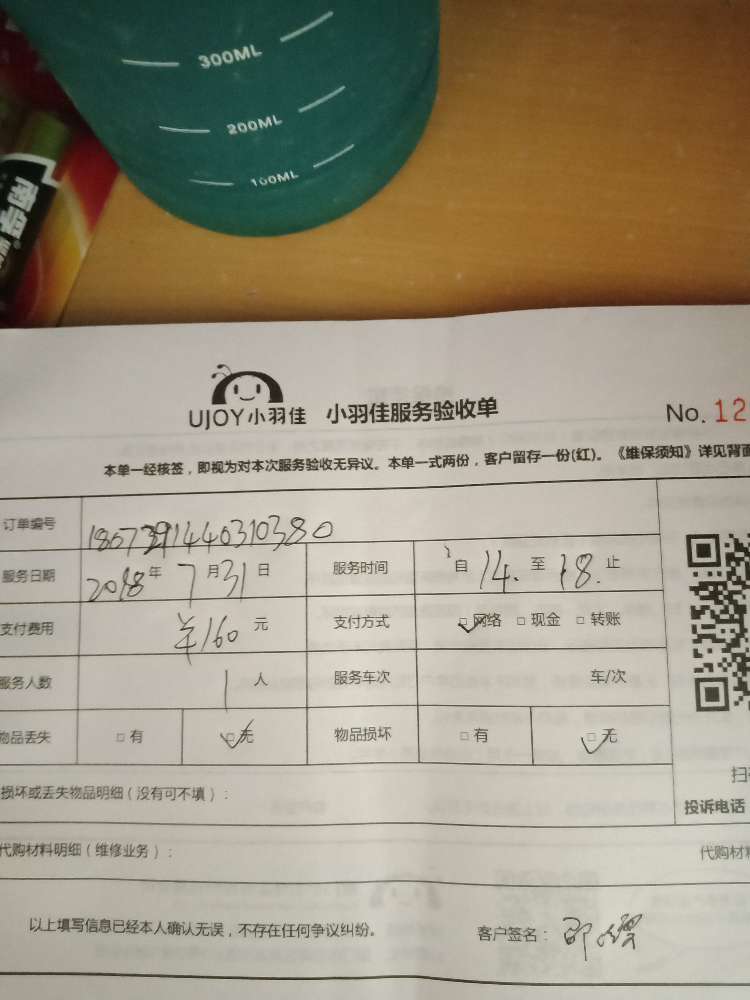 300ML
200ML
100ML
南孚
UJOY小羽佳 小羽佳服务验收单 No. 12
本单一经核签，即视为对本次服务验收无异议。本单一式两份，客户留存一份(红)。《维保须知》详见背面
订单编号
服务日期 2018年 7月31日 服务时间 自 14. 至 18. 止
支付费用 ￥160 元 支付方式 □网络 □现金 □转账
服务人数 1 人 服务车次 车/次
物品丢失 □有 □无 物品损坏 □有 □无
损坏或丢失物品明细（没有可不填）：
扫
投诉电话
代购材料明细（维修业务）： 代购材料
以上填写信息已经本人确认无误，不存在任何争议纠纷。 客户签名：